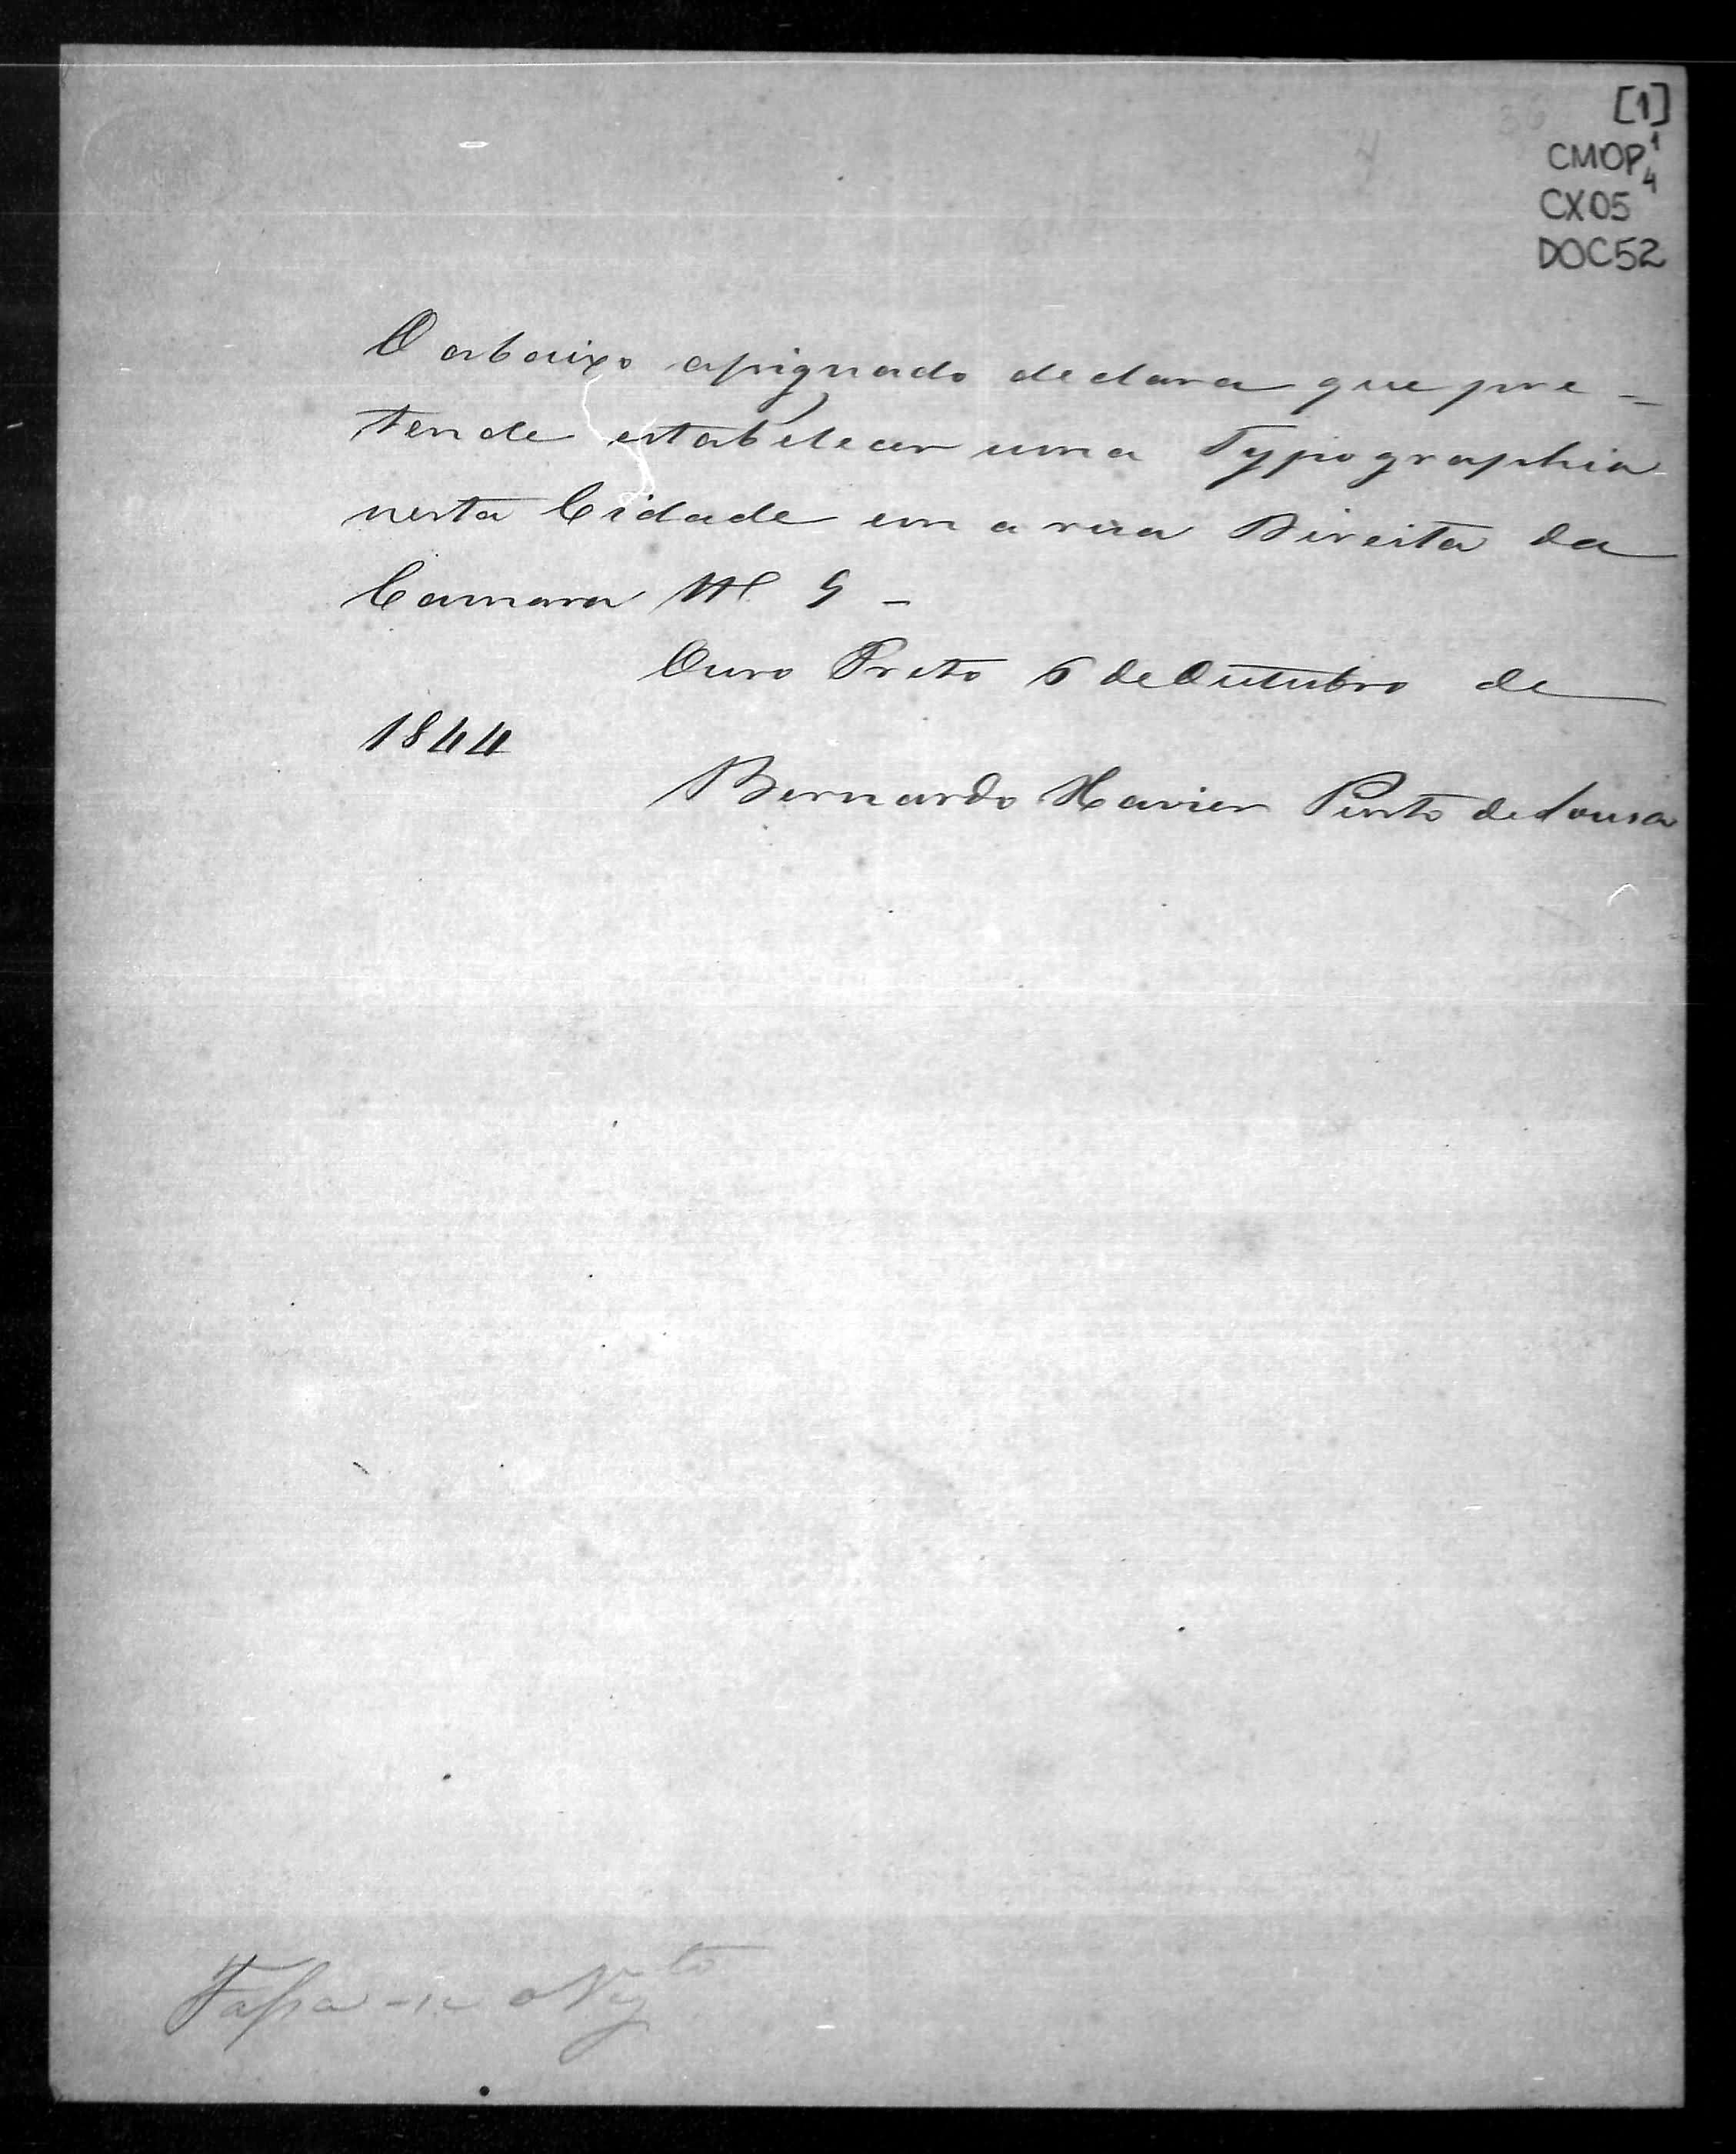 [1]
CMOP 1/4
CX05
DOC52
O abaixo assignado declara que pre-
tende estabelecer uma Typographia
nesta Cidade em a rua Direita da
Camara N 9 -
Ouro Preto 6 de Outubro de
1844
Bernardo Xavier Pinto de Sousa
Passa-se